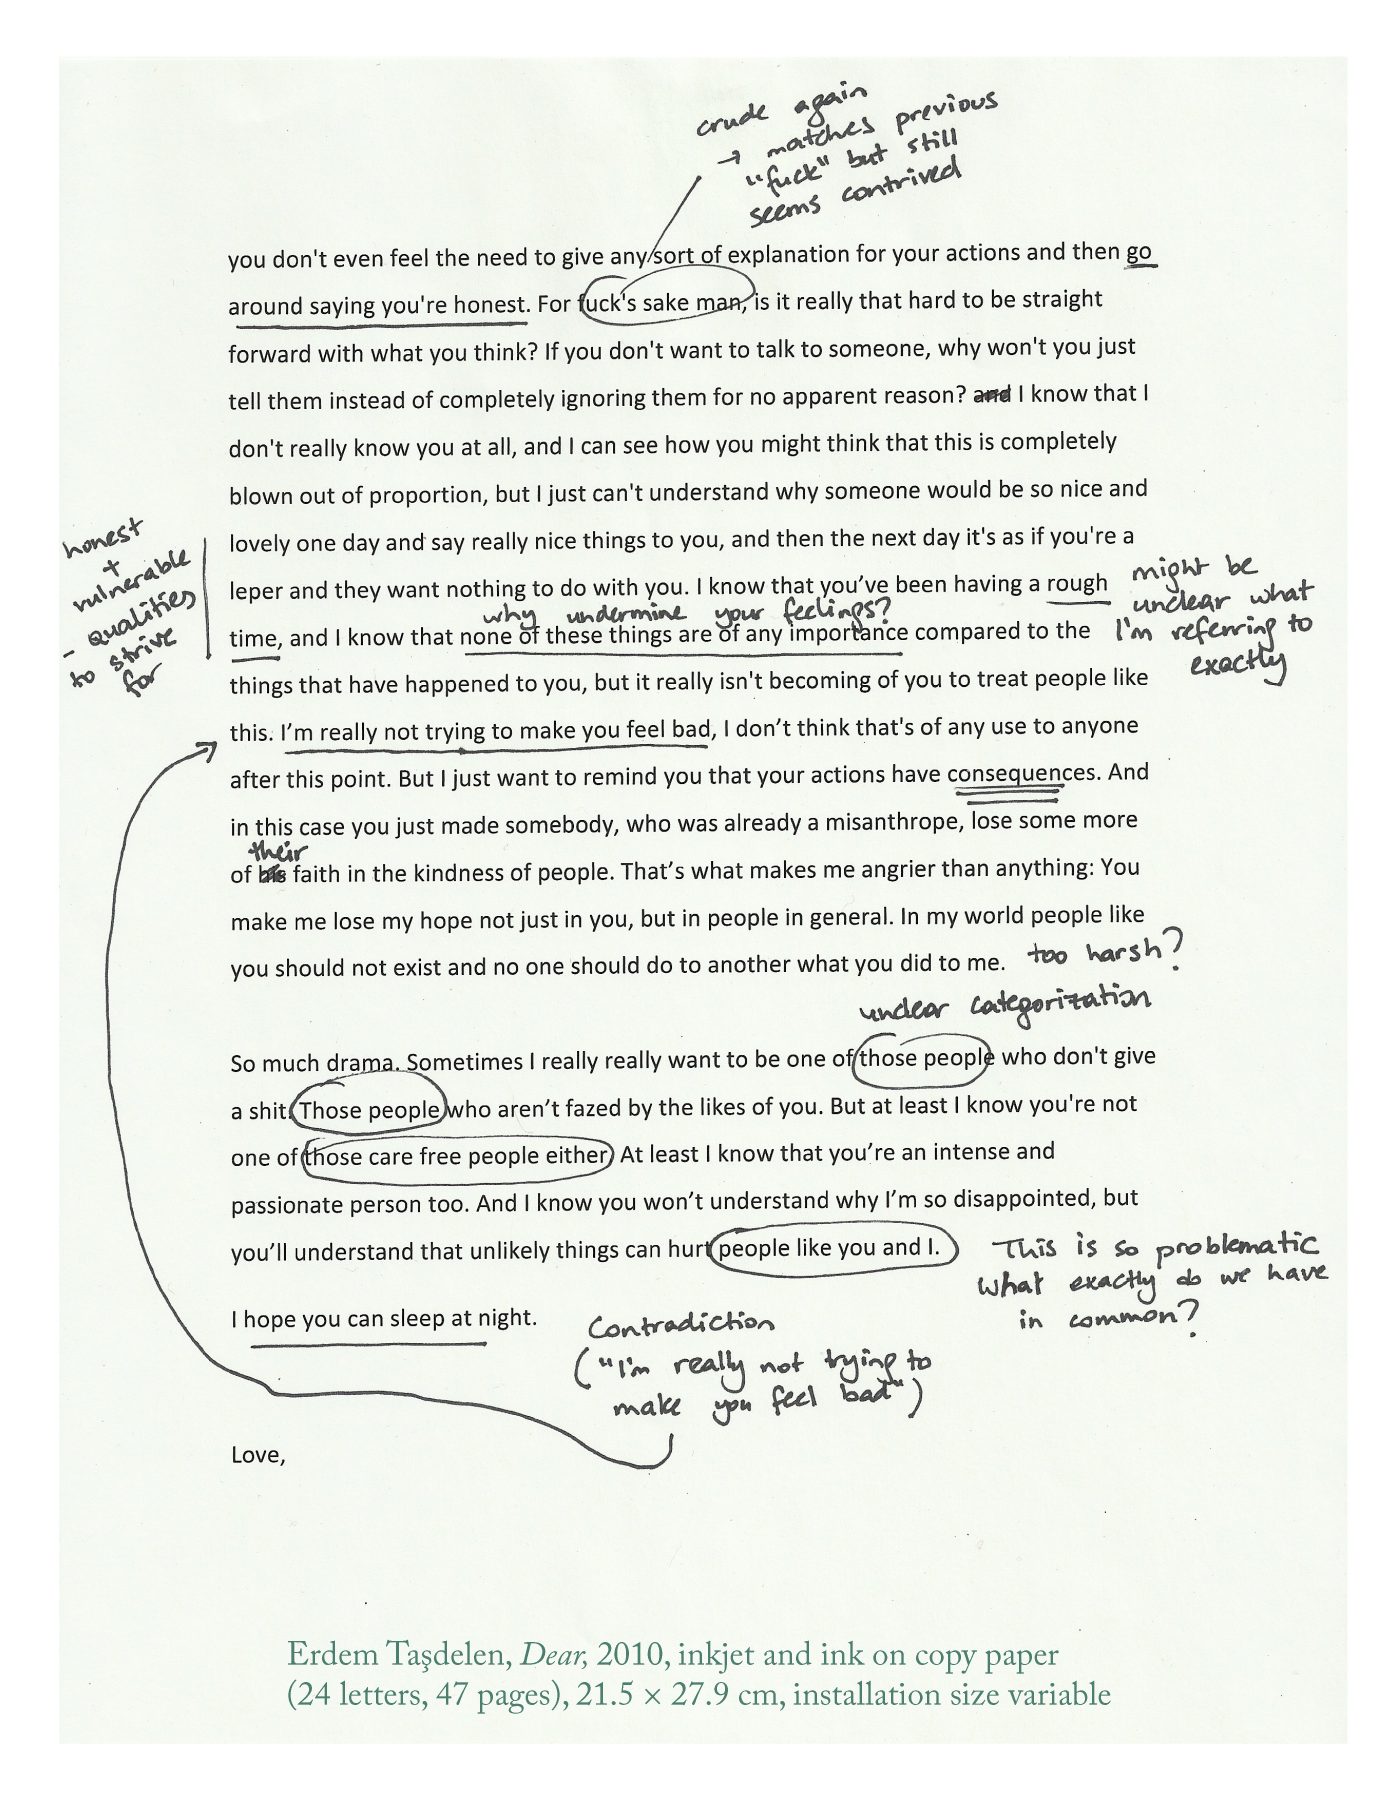 crude again
→ matches previous
"fuck" but still
seems contrived
you don't even feel the need to give any sort of explanation for your actions and then go
around saying you're honest. For fuck's sake man, is it really that hard to be straight
forward with what you think? If you don't want to talk to someone, why won't you just
tell them instead of completely ignoring them for no apparent reason? and I know that I
don't really know you at all, and I can see how you might think that this is completely
blown out of proportion, but I just can't understand why someone would be so nice and
lovely one day and say really nice things to you, and then the next day it's as if you're a
leper and they want nothing to do with you. I know that you've been having a rough
time, and I know that none of these things are of any importance compared to the
things that have happened to you, but it really isn't becoming of you to treat people like
this. I'm really not trying to make you feel bad, I don't think that's of any use to anyone
after this point. But I just want to remind you that your actions have consequences. And
in this case you just made somebody, who was already a misanthrope, lose some more
of his faith in the kindness of people. That's what makes me angrier than anything: You
make me lose my hope not just in you, but in people in general. In my world people like
you should not exist and no one should do to another what you did to me.
honest
+
vulnerable
- qualities
to strive
for
why undermine your feelings?
might be
unclear what
I'm referring to
exactly
their
too harsh?
unclear categorization
So much drama. Sometimes I really really want to be one of those people who don't give
a shit. Those people who aren't fazed by the likes of you. But at least I know you're not
one of those care free people either. At least I know that you're an intense and
passionate person too. And I know you won't understand why I'm so disappointed, but
you'll understand that unlikely things can hurt people like you and I.
This is so problematic
what exactly do we have
in common?
I hope you can sleep at night.
Contradiction
("I'm really not trying to
make you feel bad")
Love,
Erdem Taşdelen, Dear, 2010, inkjet and ink on copy paper
(24 letters, 47 pages), 21.5 × 27.9 cm, installation size variable